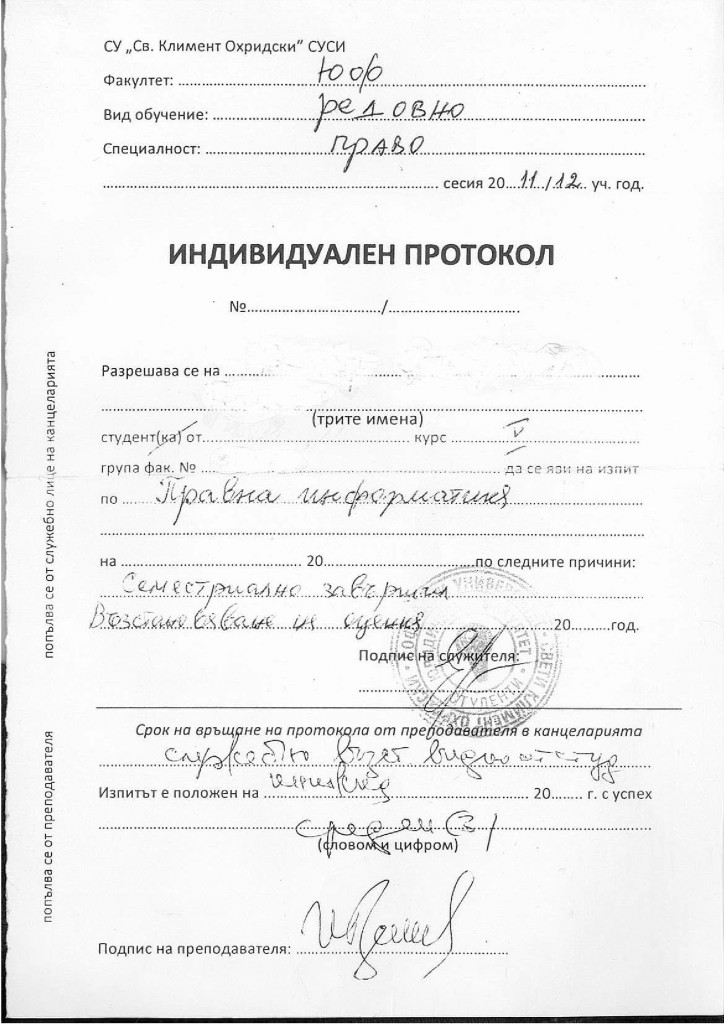 СУ „Св. Климент Охридски” СУСИ
Факултет: ЮФ
Вид обучение: редовно
Специалност: право
сесия 20 11 / 12 уч. год.
ИНДИВИДУАЛЕН ПРОТОКОЛ
№ /
Разрешава се на
(трите имена)
студент(ка) от курс V
група фак. № да се яви на изпит
по Правна информатика
на 20 по следните причини:
Семестриално завършил
Възстановяване на оценка 20 год.
Подпис на служителя:
Срок на връщане на протокола от преподавателя в канцеларията
служебно
Изпитът е положен на 20 г. с успех
среден (3)
(словом и цифром)
Подпис на преподавателя:
попълва се от служебно лице на канцеларията
попълва се от преподавателя